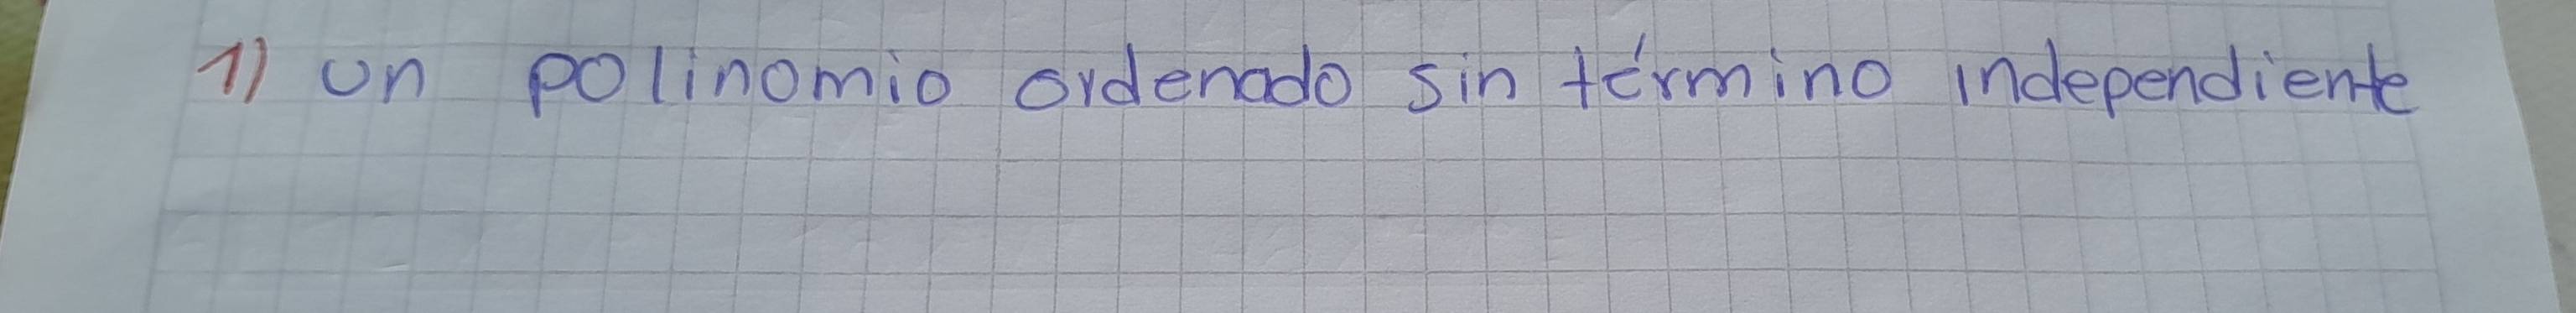 1) un polinomio ordenado sin término independiente